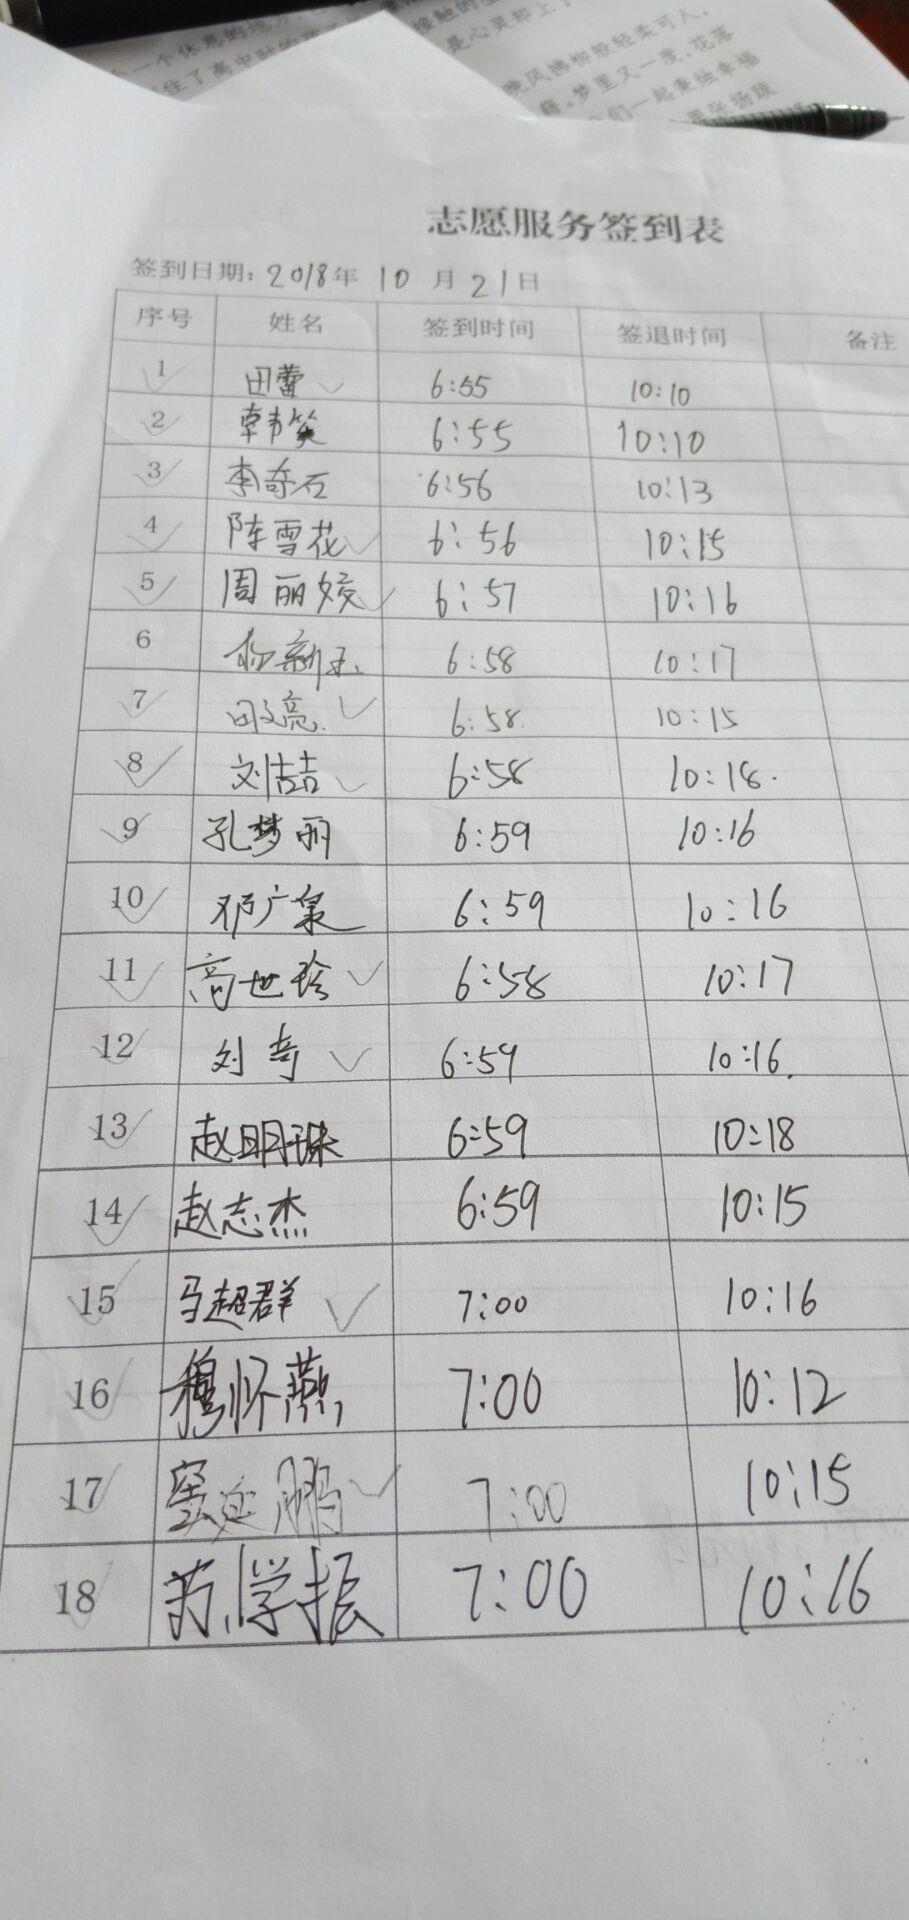 一个休息的地方
住了高中时的
接触的
是心灵却上了
晚风拂柳般轻柔可人,
梦里又一度,花落
们一起来绘幸福
志愿服务签到表
签到日期: 2018年 10 月 21日
序号 姓名 签到时间 签退时间 备注
1 田蕾 6:55 10:10
2 韩笑 6:55 10:10
3 李奇石 6:56 10:13
4 陈雪花 6:56 10:15
5 周丽姣 6:57 10:16
6 杨新玉 6:58 10:17
7 田文亮 6:58 10:15
8 刘喆 6:58 10:18
9 孔梦丽 6:59 10:16
10 邓广泉 6:59 10:16
11 高世珍 6:58 10:17
12 刘奇 6:59 10:16
13 赵明珠 6:59 10:18
14 赵志杰 6:59 10:15
15 马超群 7:00 10:16
16 穆怀燕 7:00 10:12
17 窦延鹏 7:00 10:15
18 苏学振 7:00 10:16